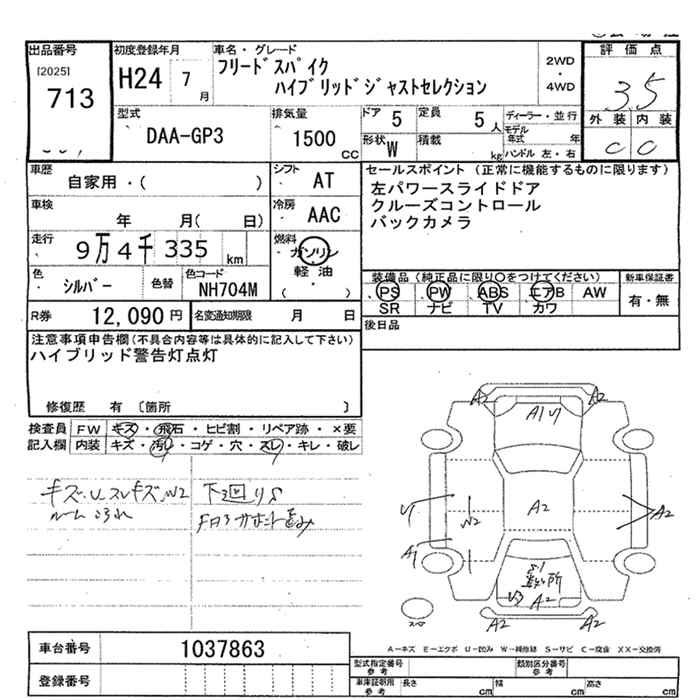 出品番号 初度登録年月 車名・グレード 評価点
[2025] 713 H24 7月 フリードスパイク 2WD・4WD 3.5
ハイブリッドジャストセレクション
型式 排気量 ドア 5 定員 5人 ディーラー・並行 外装 内装
DAA-GP3 1500cc 形状 W 積載 kg モデル年式 年 C C
ハンドル 左・右
車歴 シフト セールスポイント(正常に機能するものに限ります)
自家用・( ) AT 左パワースライドドア
車検 冷房 クルーズコントロール
年 月( 日) AAC バックカメラ
走行 燃料
9万4千335km ガソリン
軽油
( )
色 色替 色コード 装備品(純正品に限り○をつけてください) 新車保証書
シルバー NH704M PS PW ABS エアB AW 有・無
SR ナビ TV カワ
R券 12,090円 名変通知期限 月 日 後日品
注意事項申告欄(不具合内容等は具体的に記入して下さい)
ハイブリッド警告灯点灯
修復歴 有 〔箇所 〕
検査員 FW キズ・飛石・ヒビ割・リペア跡・×要
記入欄 内装 キズ・汚れ・コゲ・穴・スレ・キレ・破レ
キズ・U スレキズ・W2 下回りS
A2 A2
A1 U1
U1 W2 A2 A2
A1
S1
U3 A2
A2 A2
A=キズ E=エクボ U=凹み W=補修跡 S=サビ C=腐食 XX=交換済
車台番号 1037863
登録番号
型式指定番号 参考 類別区分番号 参考
車庫証明用 参考 長さ cm 幅 cm 高さ cm